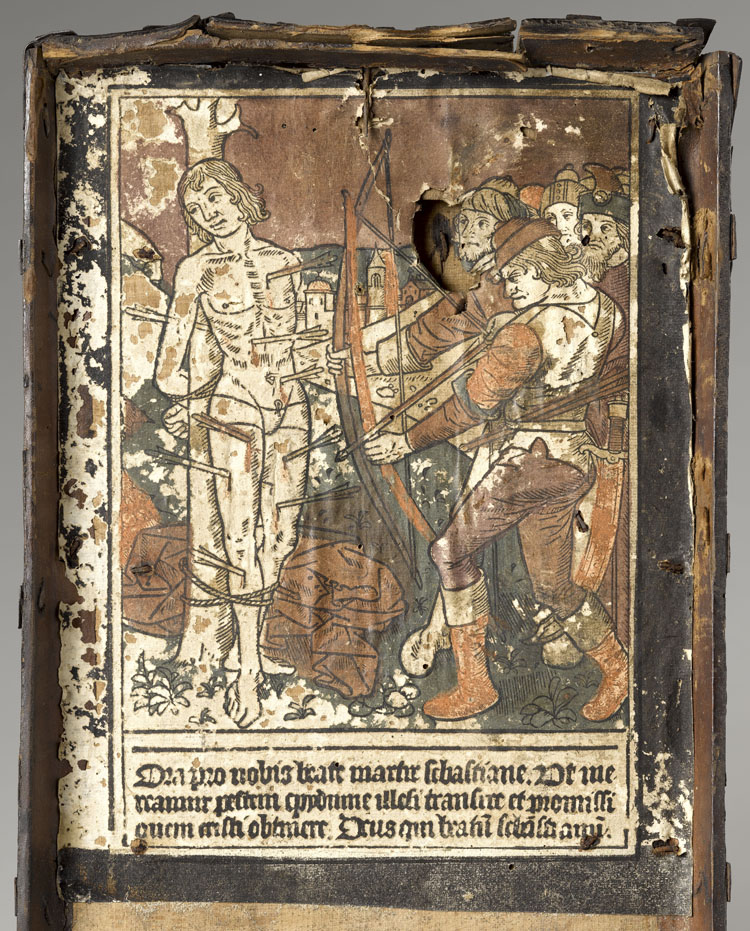 Ora pro nobis beate martir sebastiane. Vt me
reamur pestem epydimie illesi transire et promissi
onem cristi obtinere. Deus qui beatū sebā